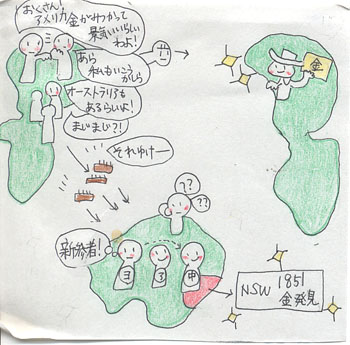 おくさん!
アメリカ金がわかって
景気いいらしい
わよ!
あら
私もいこう
かしら
金
オーストラリアも
あるらいよ!
まじまじ?!
それゆけー
??
??
新参者!
ヨ
ア
中
NSW 1851
金発見